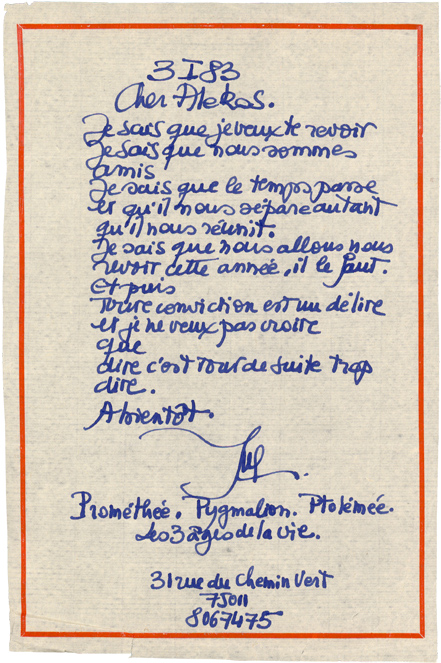 3 I 83
Cher Alekos.
Je sais que je veux te revoir
Je sais que nous sommes
amis
Je sais que le temps passe
et qu'il nous sépare autant
qu'il nous réunit.
Je sais que nous allons nous
revoir cette année, il le faut.
Et puis
Toute conviction est un délire
et je ne veux pas croire
que
dire c'est tout de suite trop
dire.
A bientôt.
Prométhée. Pygmalion. Ptolémée.
Les 3 âges de la vie.
31 rue du Chemin Vert
75011
8067475